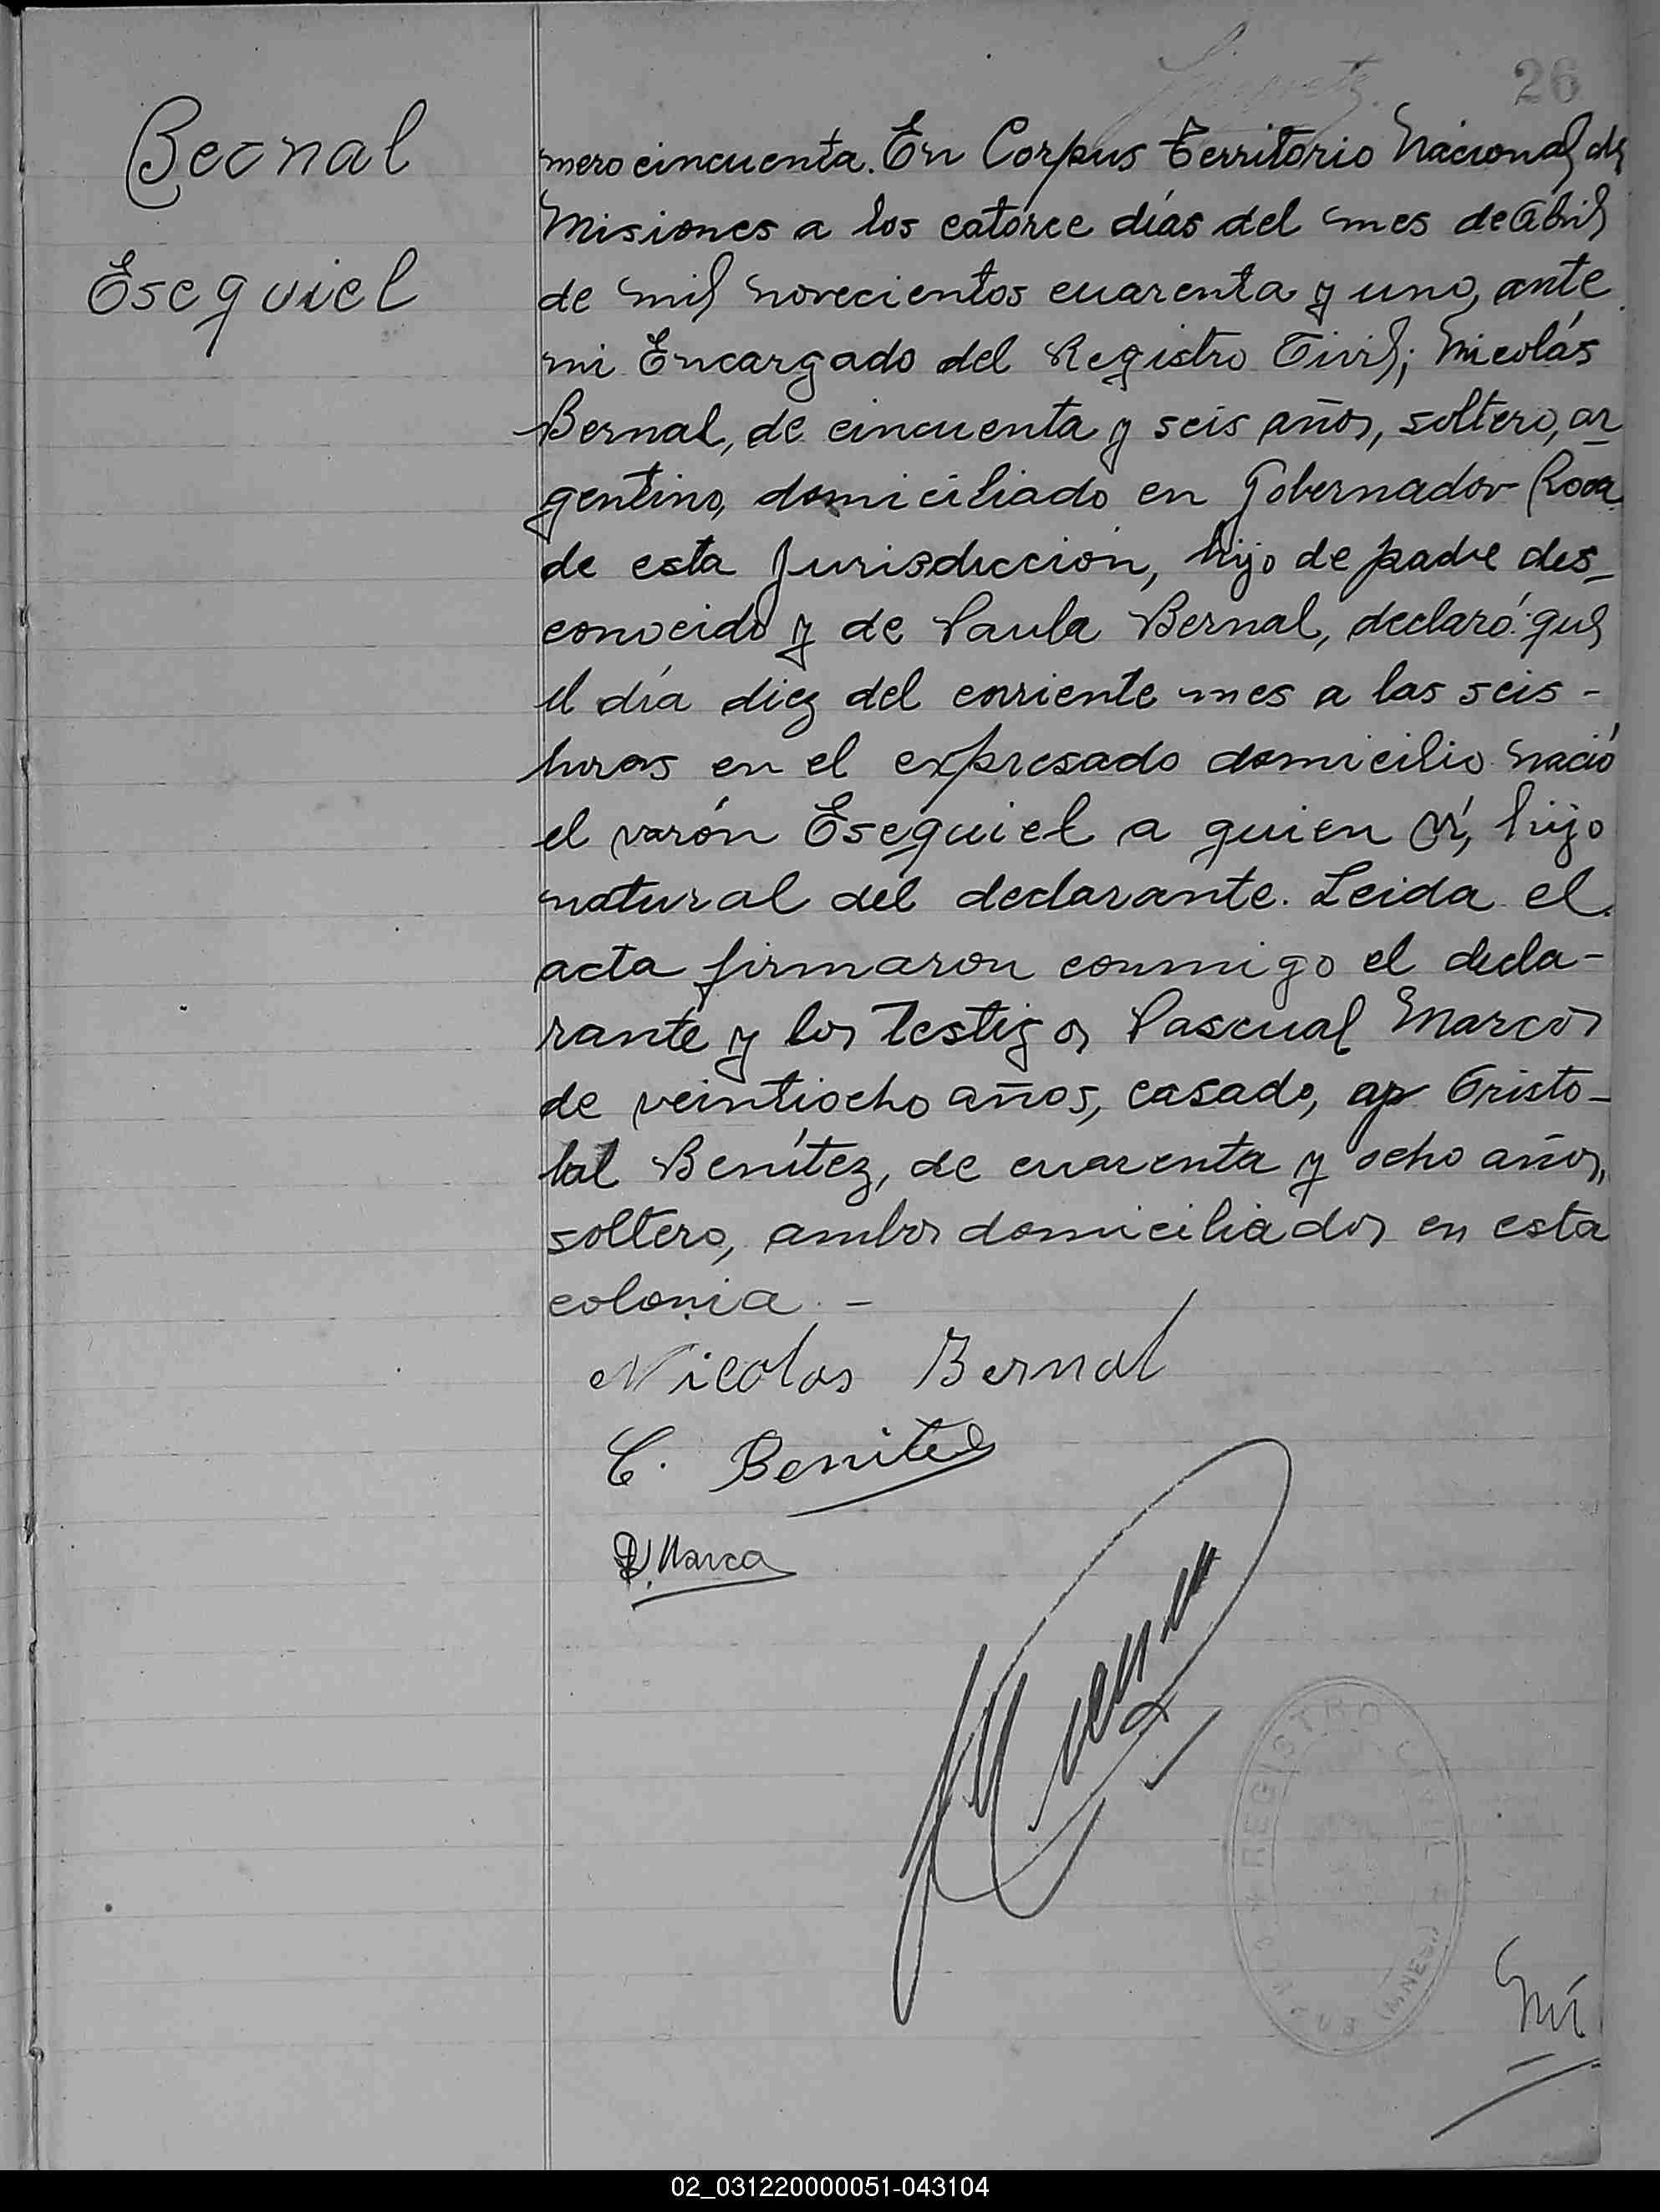 26
Bernal
Esequiel
mero cincuenta. En Corpus Territorio Nacional de
Misiones a los catorce días del mes de Abril
de mil novecientos cuarenta y uno, ante
mi Encargado del Registro Civil; Nicolás
Bernal, de cincuenta y seis años, soltero, ar
gentino, domiciliado en Gobernador Roca
de esta Jurisdiccion, hijo de padre des-
conocido y de Paula Bernal, declaró: que
el día diez del corriente mes a las seis -
horas en el expresado domicilio nació
el varón Esequiel a quien vi, hijo
natural del declarante. Leida el
acta firmaron conmigo el decla-
rante y los testigos Pascual Marcos
de veintiocho años, casado, y Cristo-
bal Benítez, de cuarenta y ocho años,
soltero, ambos domiciliados en esta
colonia. -
Nicolas Bernal
C. Benitez
P. Marco
REGISTRO CIVIL
CORPUS (MNES.)
Nú
02_031220000051-043104